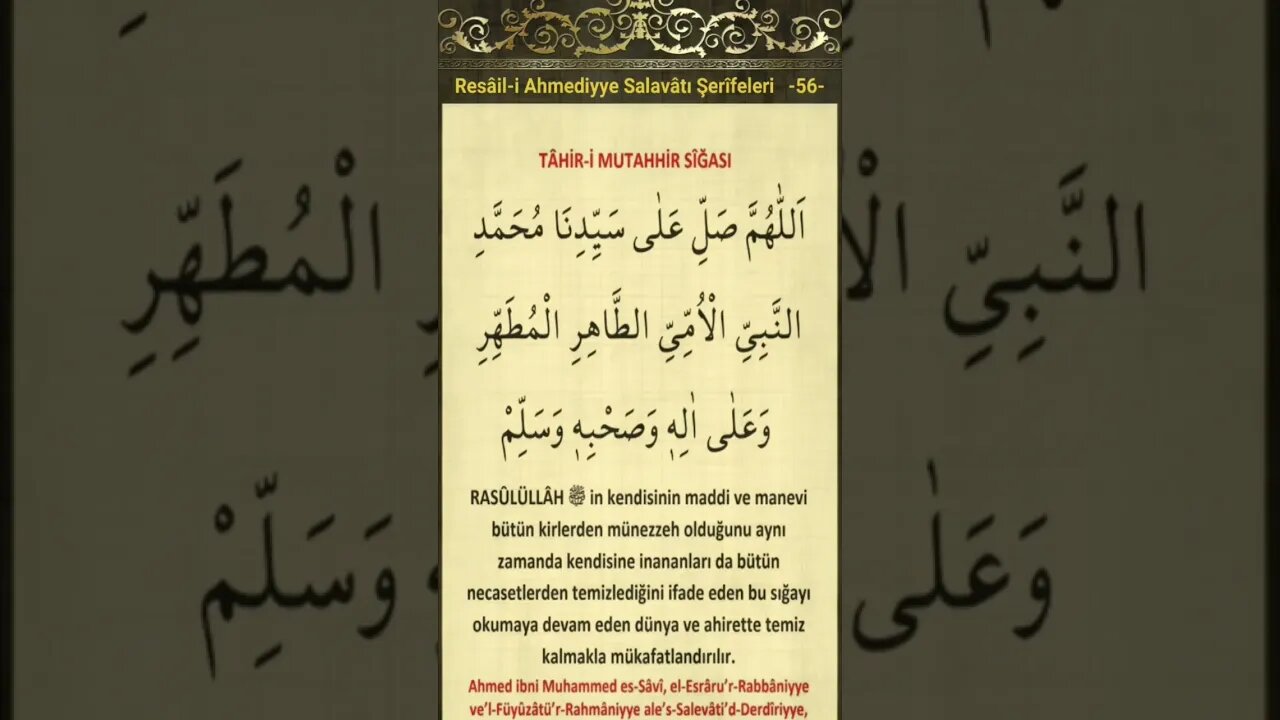 Resâil-i Ahmediyye Salavâtı Şerîfeleri -56-
TÂHİR-İ MUTAHHİR SÎĞASI
اَللّٰهُمَّ صَلِّ عَلٰى سَيِّدِنَا مُحَمَّدٍ
النَّبِيِّ الْاُمِّيِّ الطَّاهِرِ الْمُطَهِّرِ
وَعَلٰى اٰلِهٖ وَصَحْبِهٖ وَسَلِّمْ
RASÛLÜLLÂH ﷺ in kendisinin maddi ve manevi
bütün kirlerden münezzeh olduğunu aynı
zamanda kendisine inananları da bütün
necasetlerden temizlediğini ifade eden bu sığayı
okumaya devam eden dünya ve ahirette temiz
kalmakla mükafatlandırılır.
Ahmed ibni Muhammed es-Sâvî, el-Esrâru'r-Rabbâniyye
ve'l-Füyûzâtü'r-Rahmâniyye ale's-Salevâti'd-Derdîriyye,